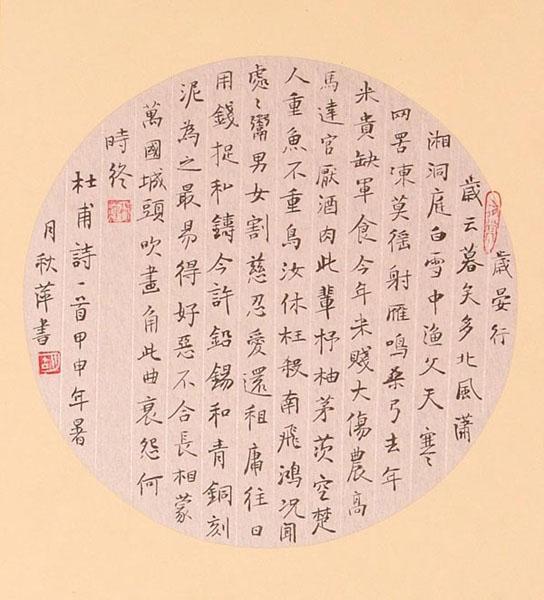 歲晏行
歲云暮矣多北風瀟
湘洞庭白雪中漁父天寒
网罟凍莫徭射雁鳴桑弓去年
米貴缺軍食今年米賤大傷農高
馬達官厭酒肉此輩杼柚茅茨空楚
人重魚不重鳥汝休枉殺南飛鴻況聞
處〻鬻男女割慈忍愛還租庸往日
用錢捉和鑄今許鉛錫和青銅刻
泥為之最易得好惡不合長相蒙
萬國城頭吹畫角此曲哀怨何
時終
杜甫詩一首甲申年暑
月秋萍書